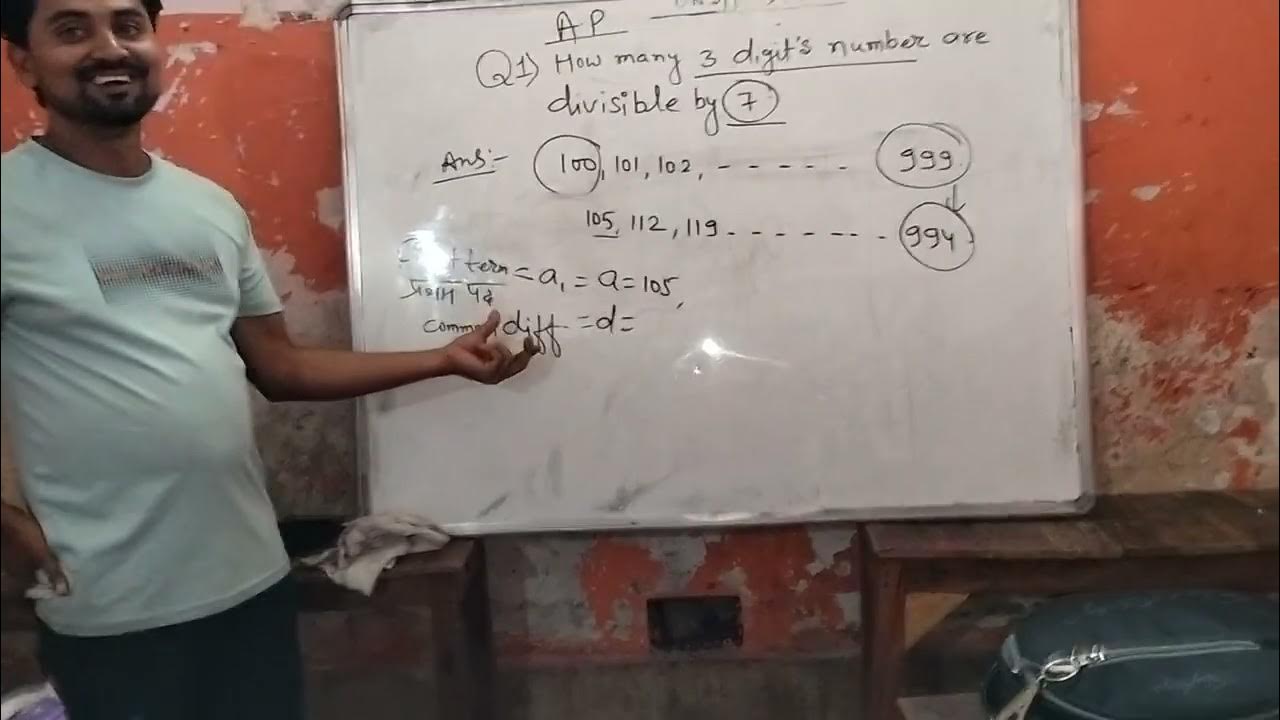 AP
Q1) How many 3 digit's number are
divisible by 7
Ans:- 100, 101, 102, - - - - - 999
105, 112, 119 - - - - - - - 994
term = a₁ = a = 105,
प्रथम पद
diff = d =